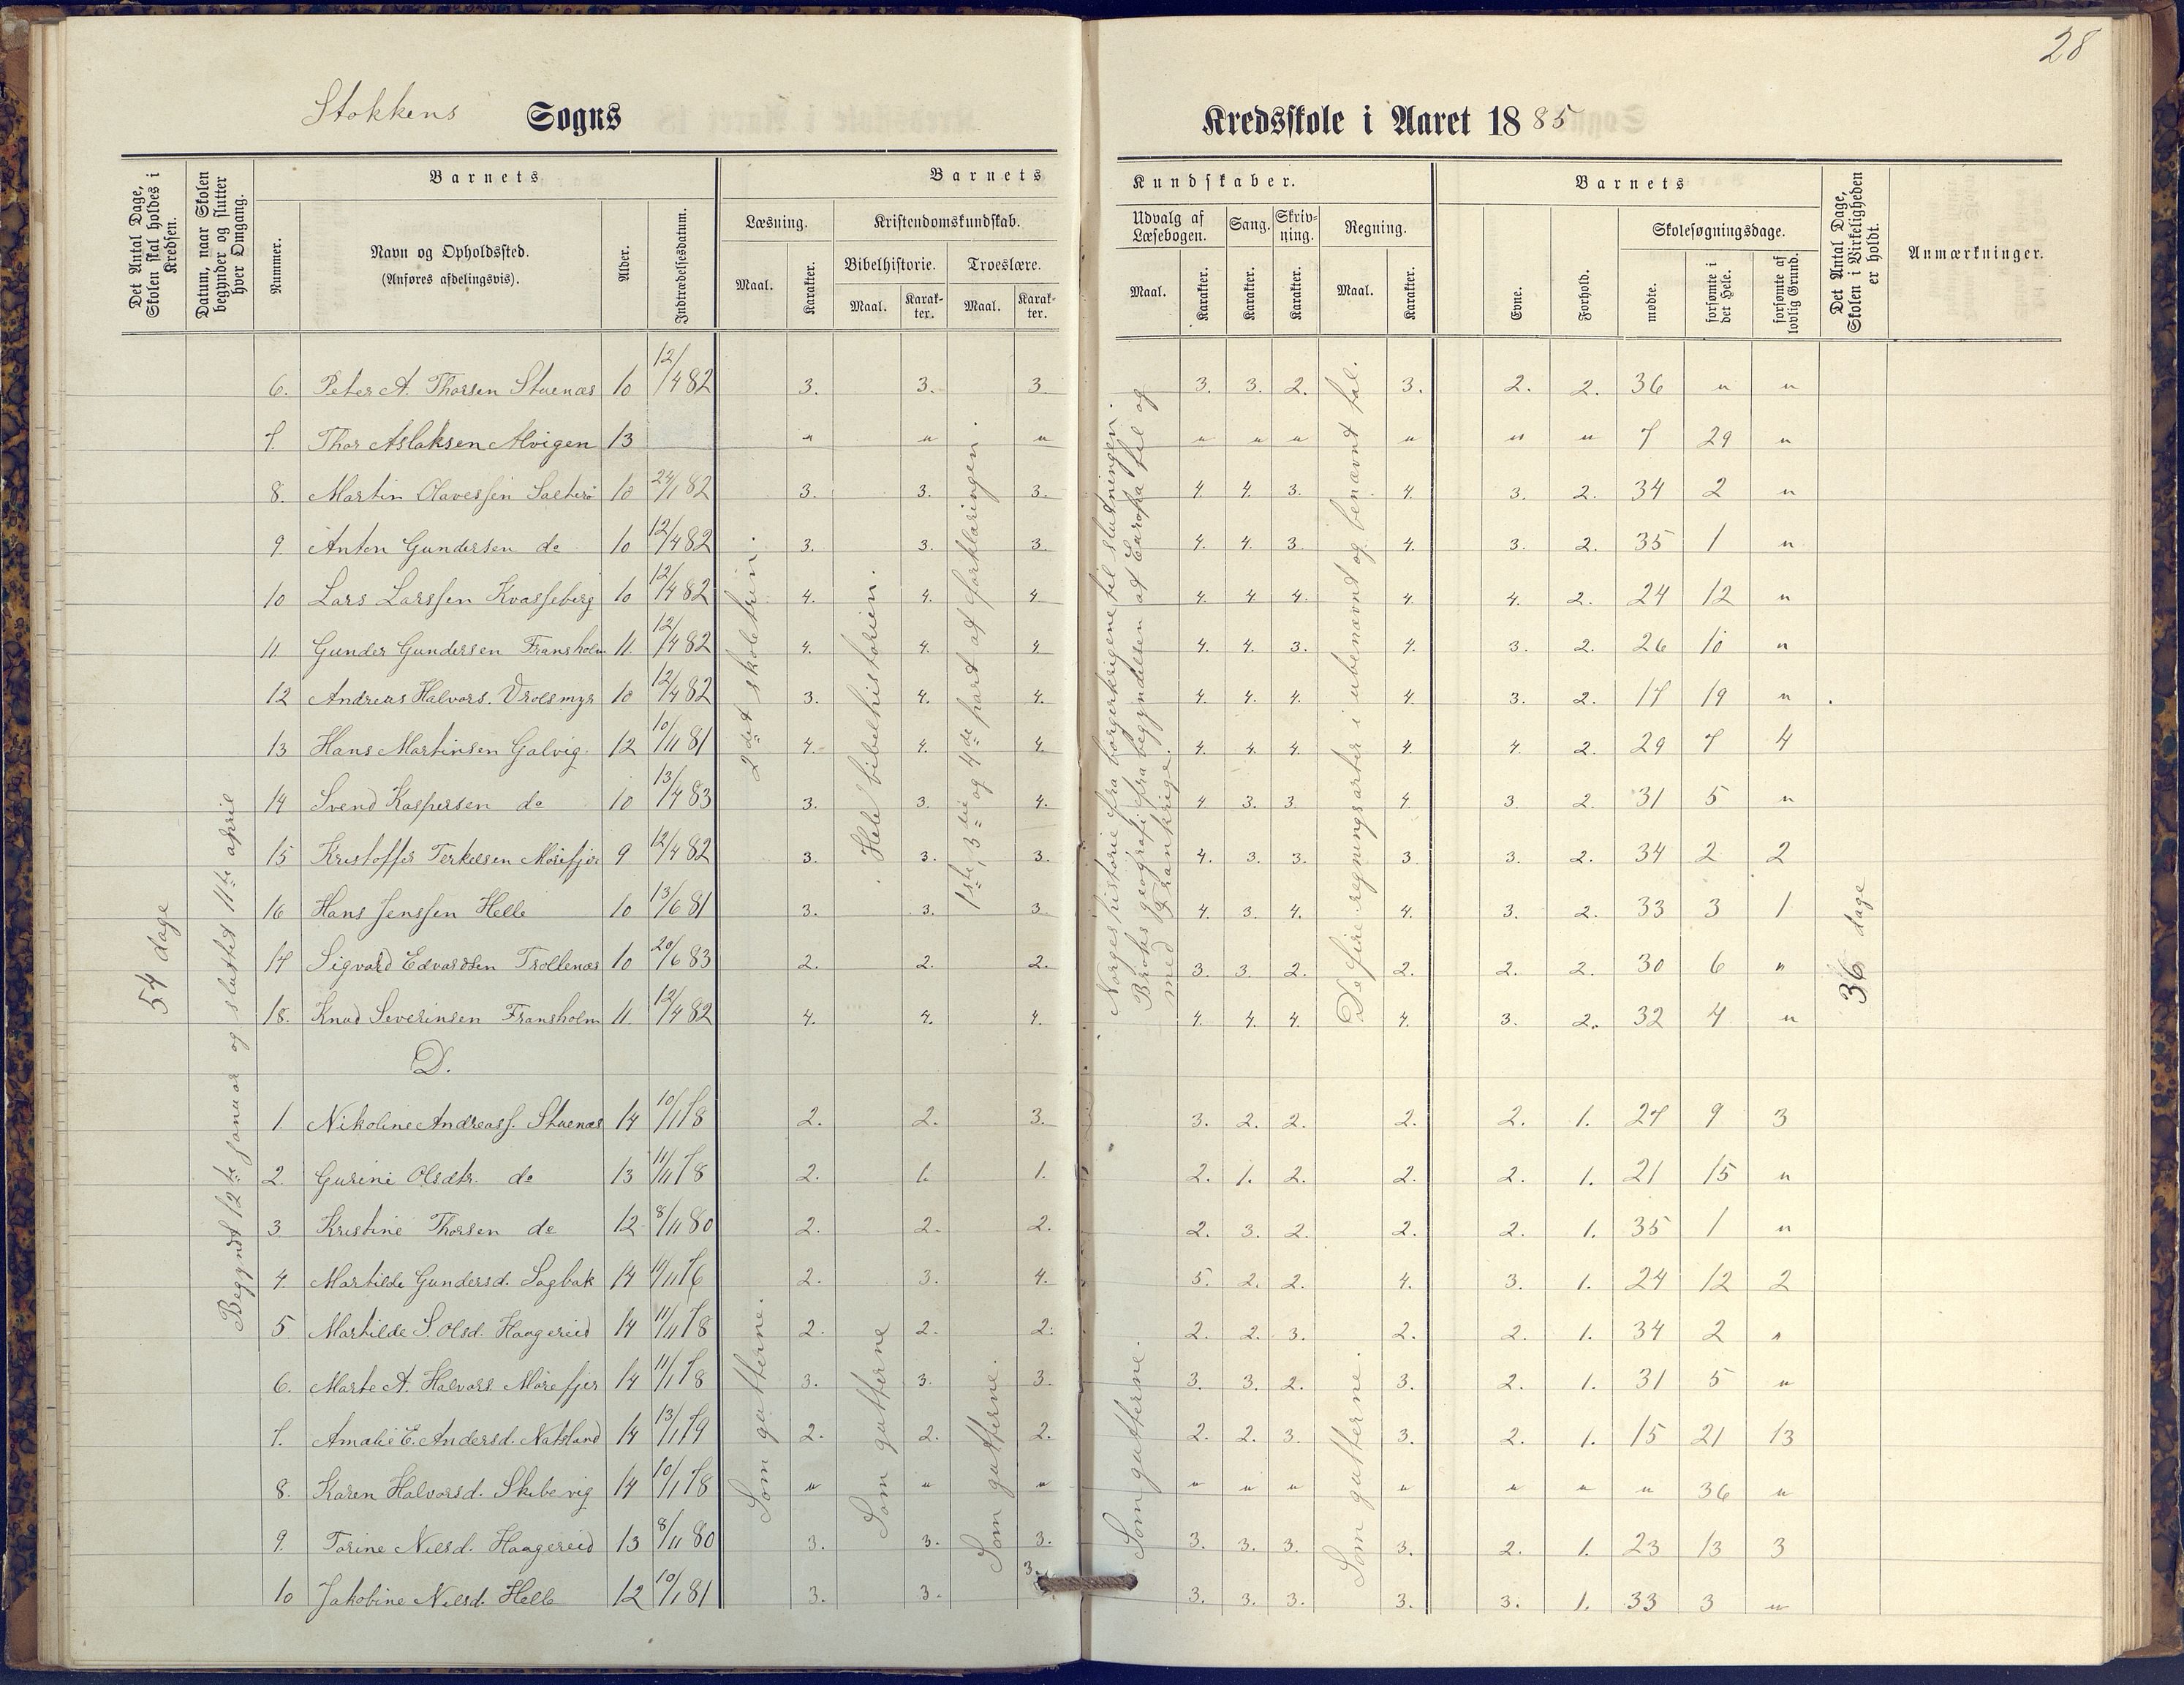 28
Stokkens Sogns
Kredsskole i Aaret 1885
Det Antal Dage, Skolen skal holdes i Kredsen.
Datum, naar Skolen begynder og slutter hver Omgang.
Barnets
Nummer.
Navn og Opholdssted.
(Anføres afdelingsvis).
Alder.
Indtrædelsesdatum.
Barnets
Læsning.
Maal.
Karakter.
Kristendomskundskab.
Bibelhistorie.
Maal.
Karakter.
Troeslære.
Maal.
Karakter.
Kundskaber.
Udvalg af Læsebogen.
Maal.
Karakter.
Sang.
Karakter.
Skrivning.
Karakter.
Regning.
Maal.
Karakter.
Barnets
Evne.
Forhold.
Skolesøgningsdage.
mødte.
forsømte i det Hele.
forsømte af lovlig Grund.
Det Antal Dage, Skolen i Virkeligheden er holdt.
Anmærkninger.
54 dage
Begyndt 12te januar og sluttet 11te april
2det skoletrin.
Hele bibelhistorien.
1ste, 3die og 4de part af forklaringen.
Norges historie fra borgerkrigene til slutningen. Brochs geografi fra begyndelsen af Europa til og med Frankrige.
De fire regningsarter i ubenævnt og benævnt tal.
36 dage
6. Peter A. Thorsen Stuenæs 10 12/4 82 3. 3. 3. 3. 3. 2. 3. 2. 2. 36 " "
7. Thor Aslaksen Alvigen 13 " " " " " " " " " 7 29 "
8. Martin Olavessen Salterø 10 24/1 82 3. 3. 3. 4. 4. 3. 4. 3. 2. 34 2 "
9. Anton Gundersen do 10 12/4 82 3. 3. 3. 4. 4. 3. 4. 3. 2. 35 1 "
10 Lars Larssen Kvasseberg 10 12/4 82 4. 4. 4. 4. 4. 4. 4. 4. 2. 24 12 "
11. Gunder Gundersen Fransholm 11. 12/4 82 4. 4. 4. 4. 4. 3. 4. 3. 2. 26 10 "
12 Andreas Halvors. Vrolsmyr 10 12/4 82 3. 4. 4. 4. 4. 4. 4. 3. 2. 17 19 "
13 Hans Martinsen Galvig. 12 10/11 81 4. 4. 4. 4. 4. 4. 4. 4. 2. 29 7 4
14 Svend Kaspersen do 10 13/4 83 3. 3. 4. 4. 3. 3. 4. 3. 2. 31 5 "
15 Kristoffer Terkelsen Morefjer 9 12/4 82 3. 3. 3. 4. 3. 3. 3. 3. 2. 34 2 2
16 Hans Jenssen Helle 10 13/6 81 3. 3. 3. 4. 3. 4. 4. 3. 2. 33 3 1
17 Sigvard Edvardsen Trollenæs 10 20/6 83 2. 2. 2. 3. 3. 2. 2. 2. 2. 30 6 "
18. Knud Severinsen Fransholm 11. 12/4 82 4. 4. 4. 4. 4. 4. 4. 3. 2. 32 4 "
D.
1. Nikoline Andreass. Stuenæs 14 10/1 78 2. 2. 3. 3. 2. 2. 2. 2. 1. 27 9 3
2. Gurine Olsdtr. do 13 11/11 78 2. 1. 1. 2. 1. 2. 2. 2. 1. 21 15 "
3. Kristine Thorsen do 12 8/11 80 2. 2. 2. 2. 3. 2. 2. 2. 1. 35 1 "
4. Martilde Gundersd. Sagbak 14 11/11 76 2. 3. 4. 5. 2. 2. 4. 3. 1. 24 12 2
5 Martilde S. Olsd. Haagereid 14 11/11 78 2. 2. 2. 2. 2. 3. 2. 2. 1. 34 2 "
6. Marte A. Halvors. Morefjer 14 11/1 78 3. 3. 3. 3. 3. 2. 3. 2. 1. 31 5 "
7. Amalie E. Andersd. Natsland 14 13/1 79 2. 2. 2. 2. 2. 3. 3. 2. 1. 15 21 13
8. Karen Halvorsd. Skibevig 14 10/1 78 " " " " " " " " " " 36 "
9. Torine Nilsd. Haagereid 13 8/11 80 3. 3. 3. 3. 3. 3. 3. 2. 1. 23 13 3
10 Jakobine Nilsd. Helle 12 10/1 81 3. 3. 3. 3. 3. 3. 3. 3. 1. 33 3 "
Som gutterne.
Som gutterne
Som gutterne.
Som gutterne.
Som gutterne.